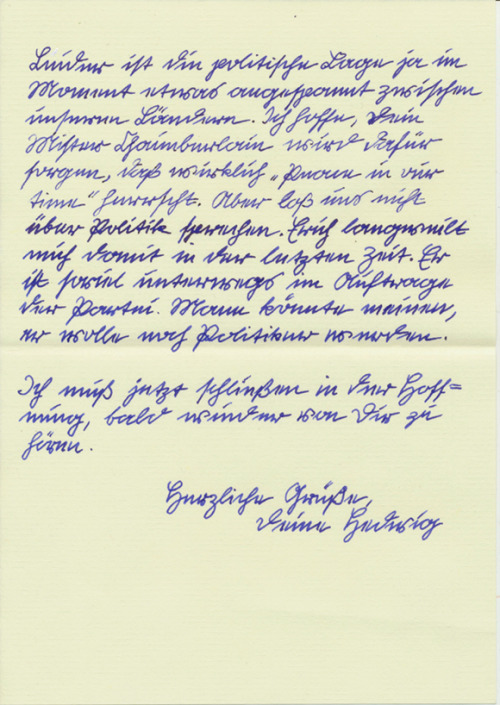 Leider ist die politische Lage ja im
Moment etwas angespannt zwischen
unseren Ländern. Ich hoffe, Dein
Mister Chamberlain wird dafür
sorgen, daß wirklich „Peace in our
time“ herrscht. Aber laß uns nicht
über Politik sprechen. Erich langweilt
mich damit in der letzten Zeit. Er
ist soviel unterwegs im Auftrage
der Partei. Mann könnte meinen,
er wolle noch Politiker werden.
Ich muß jetzt schließen in der Hoff=
nung, bald wieder von Dir zu
hören.
Herzliche Grüße,
Deine Hedwig